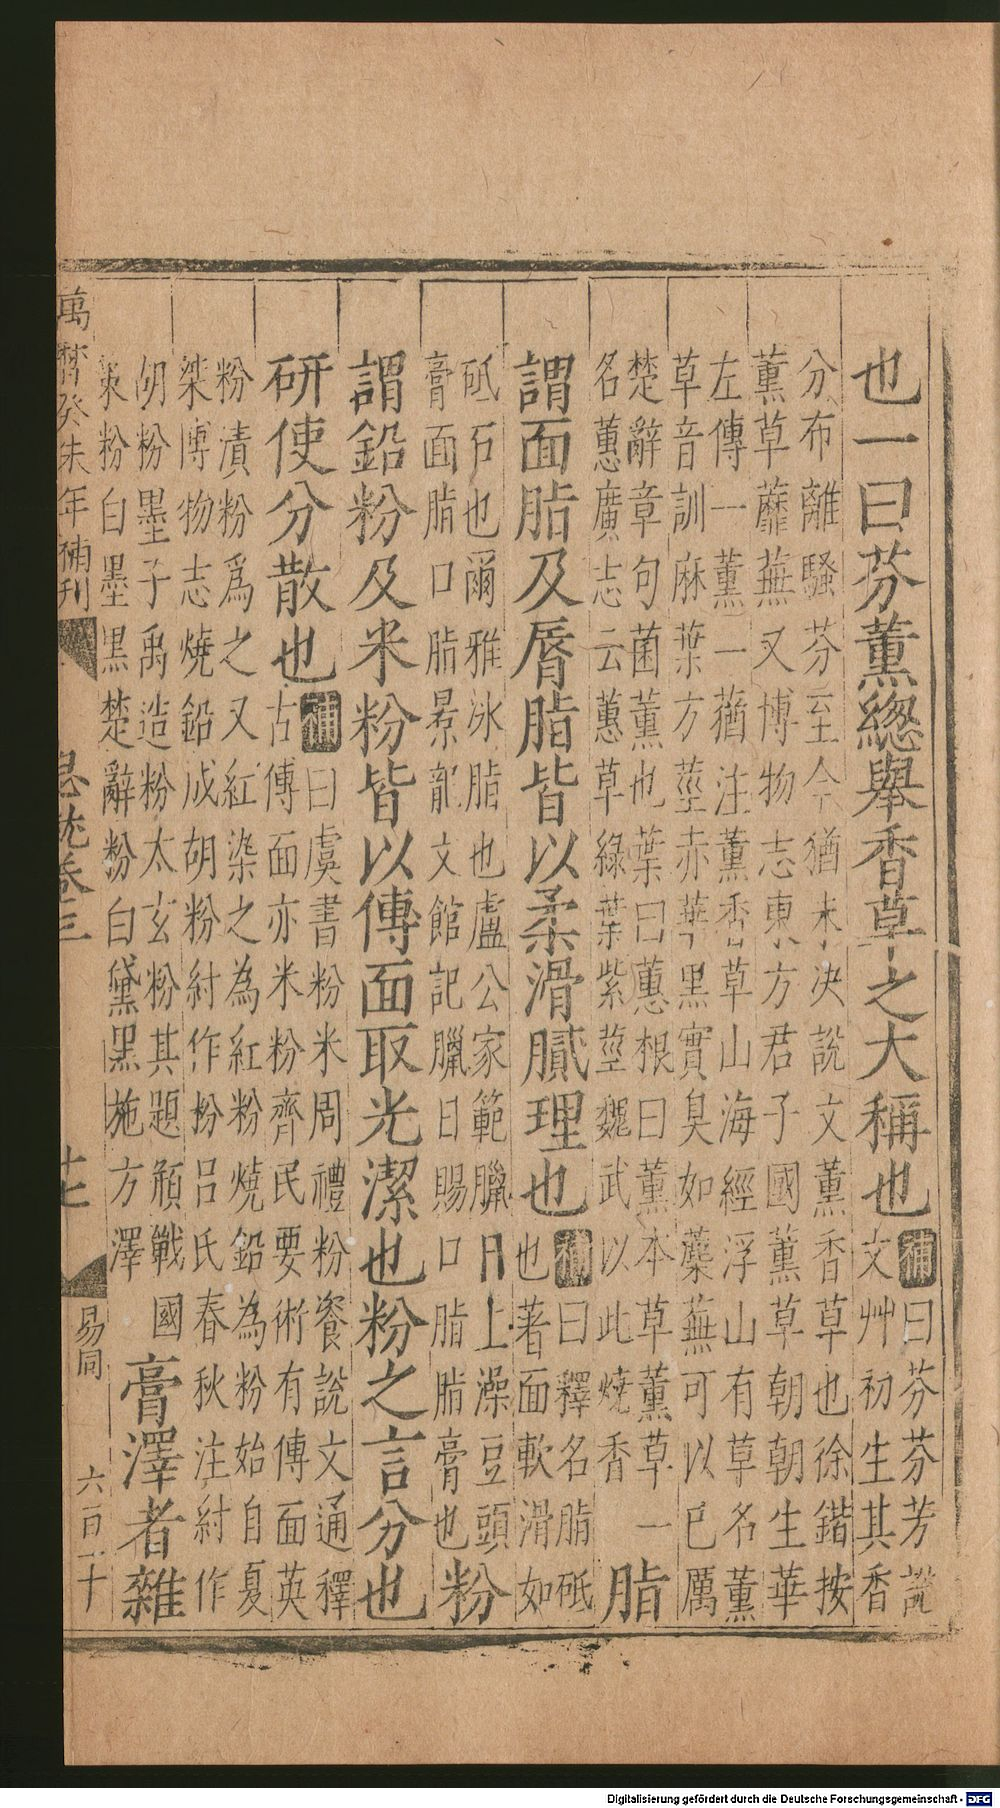 也一曰芬薰緫舉香草之大稱也補曰芬芬芳說
文艸初生其香
分布離騷芬至今猶未決說文薰香草也徐鍇按
薰草蘼蕪又博物志東方君子國薰草朝朝生華
左傳一薰一蕕注薰香草山海經浮山有草名薰
草音訓麻葉方莖赤華黑實臭如蘪蕪可以已厲
楚辭章句菌薰也葉曰蕙根曰薰本草薰草一
名蕙廣志云蕙草綠葉紫莖魏武以此燒香
脂
謂面脂及脣脂皆以柔滑膩理也補曰釋名脂砥
也著面軟滑如
砥石也爾雅冰脂也盧公家範臘日上澡豆頭
膏面脂口脂景龍文館記臘日賜口脂脂膏也
粉
謂鉛粉及米粉皆以傅面取光潔也粉之言分也
研使分散也補曰虞書粉米周禮粉餈說文通釋
古傅面亦米粉齊民要術有傅面英
粉漬粉爲之又紅染之為紅粉燒鉛為粉始自夏
桀博物志燒鉛成胡粉紂作粉呂氏春秋注紂作
胡粉墨子禹造粉太玄粉其題頯戰國
策粉白墨黑楚辭粉白黛黑施方澤
膏澤者雜
萬曆癸未年補刊
急就卷三
十七
易同
六百二十
Digitalisierung gefördert durch die Deutsche Forschungsgemeinschaft - DFG